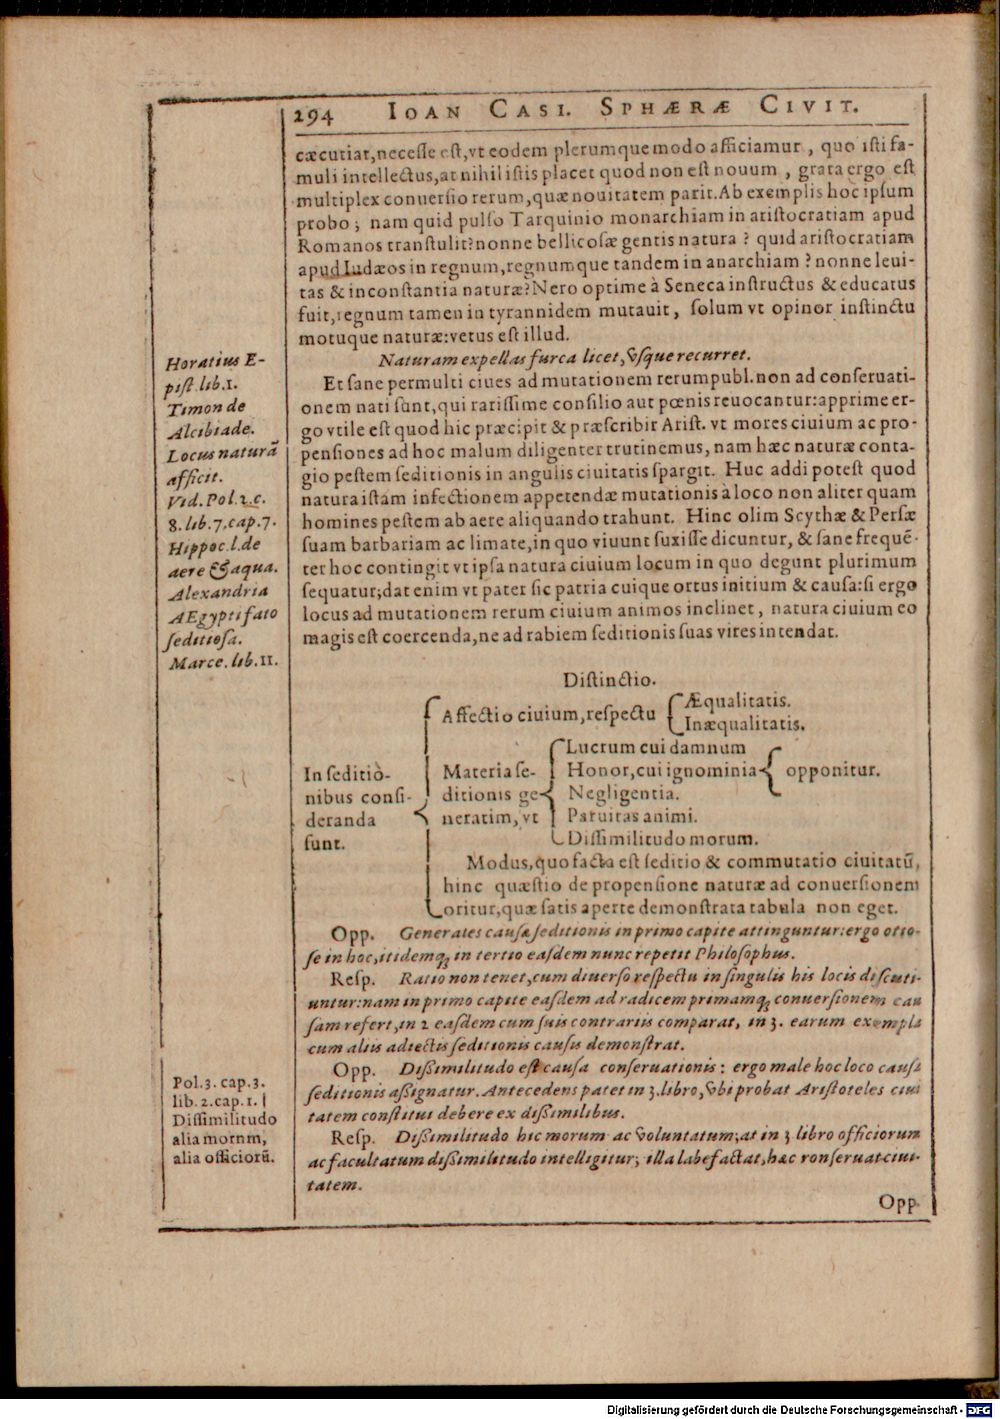 294 IOAN CASI. SPHÆRÆ CIVIT.
cæcutiat,necesse est,vt eodem plerumque modo afficiamur , quo isti fa-
muli intellectus,at nihil istis placet quod non est nouum , grata ergo est
multiplex conuersio rerum,quæ nouitatem parit.Ab exemplis hoc ipsum
probo ; nam quid pulso Tarquinio monarchiam in aristocratiam apud
Romanos transtulit?nonne bellicosæ gentis natura ? quid aristocratiam
apud Iudæos in regnum,regnumque tandem in anarchiam ? nonne leui-
tas & inconstantia naturæ?Nero optime à Seneca instructus & educatus
fuit,regnum tamen in tyrannidem mutauit, solum vt opinor instinctu
motuque naturæ:vetus est illud.
Naturam expellas furca licet,vsque recurret.
Horatius E-
pist.lib.1.
Timon de
Alcibiade.
Locus naturã
afficit.
Vid.Pol.2.c.
8.lib.7.cap.7.
Hippoc.l.de
aere & aqua.
Alexandria
AEgypti fato
seditiosa.
Marce.lib.11.
Et sane permulti ciues ad mutationem rerumpubl.non ad conseruati-
onem nati sunt,qui rarissime consilio aut pœnis reuocantur:apprime er-
go vtile est quod hic præcipit & præscribit Arist. vt mores ciuium ac pro-
pensiones ad hoc malum diligenter trutinemus, nam hæc naturæ conta-
gio pestem seditionis in angulis ciuitatis spargit. Huc addi potest quod
natura istam infectionem appetendæ mutationis à loco non aliter quam
homines pestem ab aere aliquando trahunt. Hinc olim Scythæ & Persæ
suam barbariam ac limate,in quo viuunt suxisse dicuntur, & sane frequẽ-
ter hoc contingit vt ipsa natura ciuium locum in quo degunt plurimum
sequatur;dat enim vt pater sic patria cuique ortus initium & causa:si ergo
locus ad mutationem rerum ciuium animos inclinet , natura ciuium eo
magis est coercenda,ne ad rabiem seditionis suas vires intendat.
Distinctio.
In seditio-
nibus consi-
deranda
sunt.
Affectio ciuium,respectu
Æqualitatis.
Inæqualitatis.
Materia se-
ditionis ge
neratim, vt
Lucrum cui damnum
Honor,cui ignominia
opponitur.
Negligentia.
Paruitas animi.
Dissimilitudo morum.
Modus,quo facta est seditio & commutatio ciuitatũ,
hinc quæstio de propensione naturæ ad conuersionem
oritur,quæ satis aperte demonstrata tabula non eget.
Opp. Generales causæ seditionis in primo capite attinguntur:ergo otio-
se in hoc,itidemq; in tertio easdem nunc repetit Philosophus.
Resp. Ratio non tenet,cum diuerso respectu in singulis his locis discuti-
untur:nam in primo capite easdem ad radicem primamq; conuersionem cau
sam refert,in 2 easdem cum suis contrariis comparat, in 3. earum exempla
cum aliis adiectis seditionis causis demonstrat.
Opp. Dissimilitudo est causa conseruationis : ergo male hoc loco causa
seditionis assignatur. Antecedens patet in 3.libro,vbi probat Aristoteles ciui
tatem constitui debere ex dissimilibus.
Pol.3. cap.3.
lib.2.cap.1.
Dissimilitudo
alia mornm,
alia officiorũ.
Resp. Dissimilitudo hic morum ac voluntatum;at in 3 libro officiorum
ac facultatum dissimilitudo intelligitur; illa labefactat,hæc ronseruat ciui-
tatem.
Opp.
Digitalisierung gefördert durch die Deutsche Forschungsgemeinschaft - DFG